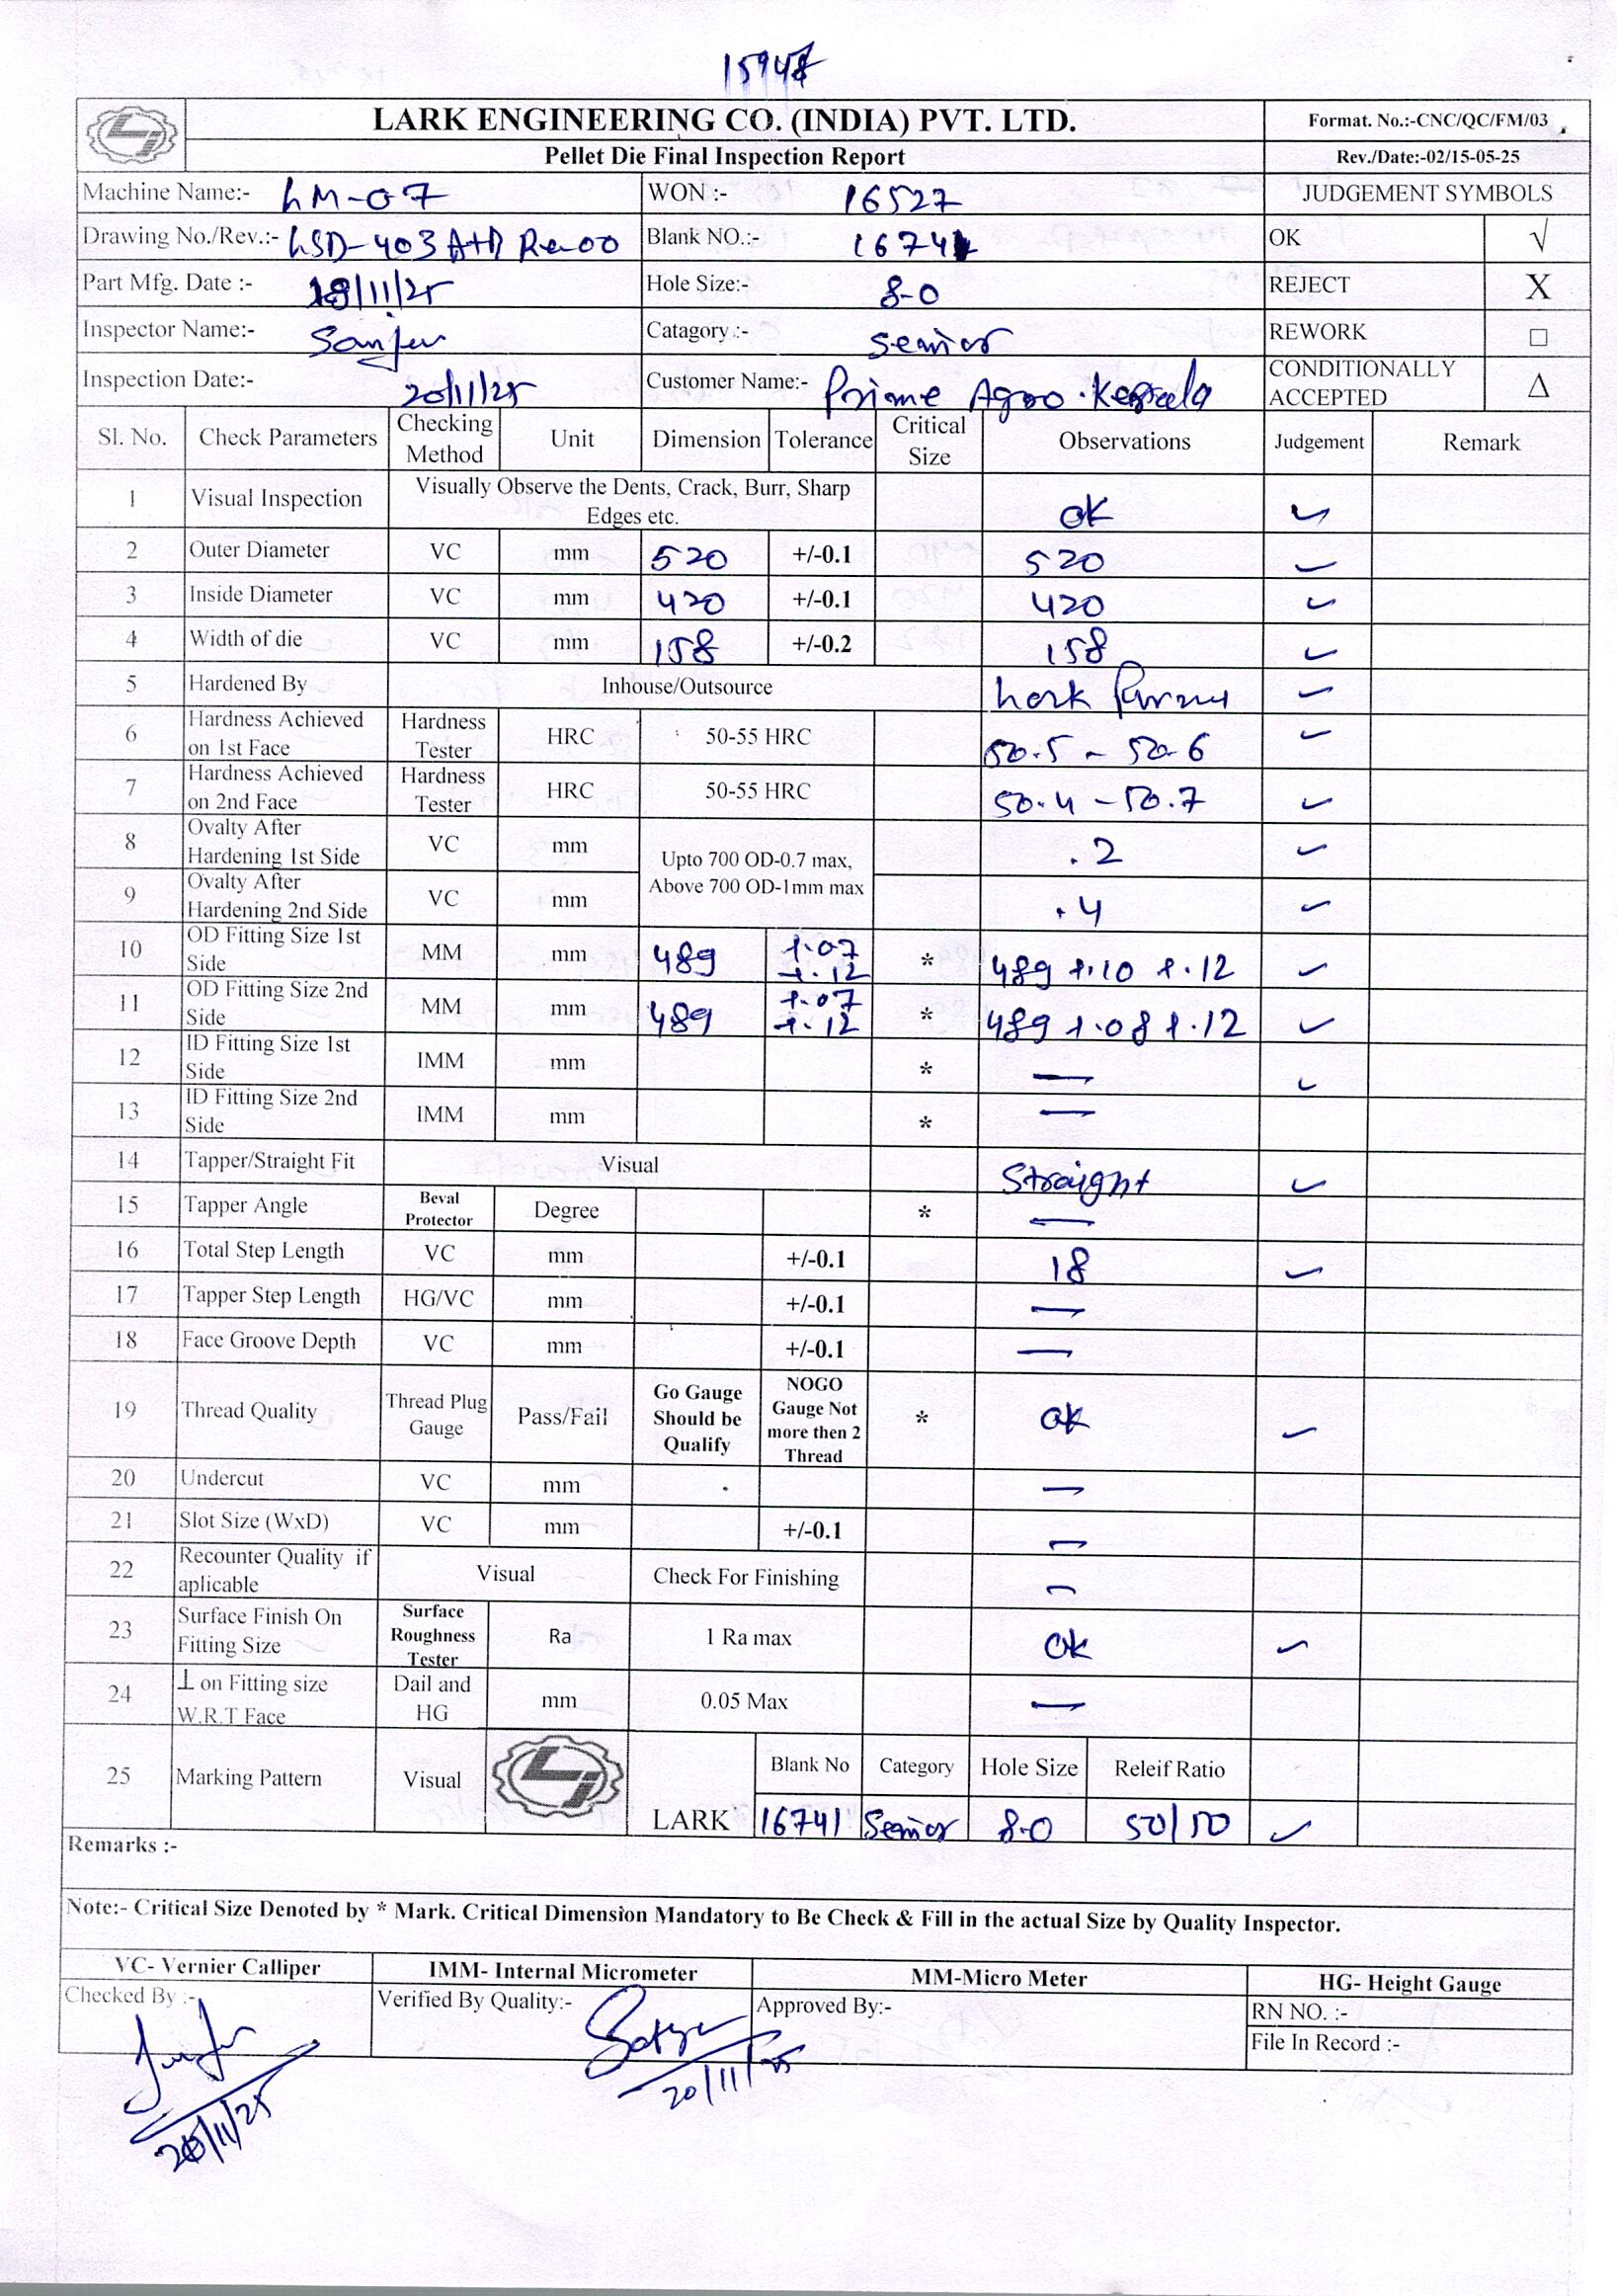 15948
LARK ENGINEERING CO. (INDIA) PVT. LTD.
Format. No.:-CNC/QC/FM/03
Pellet Die Final Inspection Report
Rev./Date:-02/15-05-25
Machine Name:- LM-07 WON :- 16527 JUDGEMENT SYMBOLS
Drawing No./Rev.:- LSD-403 A+D Re-00 Blank NO.:- 16741 OK √
Part Mfg. Date :- 18/11/25 Hole Size:- 8-0 REJECT X
Inspector Name:- Catagory :- Senior REWORK □
Inspection Date:- 20/11/25 Customer Name:- Prime Agro. Kerala CONDITIONALLY ACCEPTED Δ
Sl. No. Check Parameters Checking Method Unit Dimension Tolerance Critical Size Observations Judgement Remark
1 Visual Inspection Visually Observe the Dents, Crack, Burr, Sharp Edges etc. ok ✓
2 Outer Diameter VC mm 520 +/-0.1 520 ✓
3 Inside Diameter VC mm 420 +/-0.1 420 ✓
4 Width of die VC mm 158 +/-0.2 158 ✓
5 Hardened By Inhouse/Outsource Lark ✓
6 Hardness Achieved on 1st Face Hardness Tester HRC 50-55 HRC 50.5 - 50.6 ✓
7 Hardness Achieved on 2nd Face Hardness Tester HRC 50-55 HRC 50.4 - 50.7 ✓
8 Ovalty After Hardening 1st Side VC mm Upto 700 OD-0.7 max, Above 700 OD-1mm max .2 ✓
9 Ovalty After Hardening 2nd Side VC mm .4 ✓
10 OD Fitting Size 1st Side MM mm 489 +.07 +.12 * 489 +.10 +.12 ✓
11 OD Fitting Size 2nd Side MM mm 489 +.07 +.12 * 489 +.08 +.12 ✓
12 ID Fitting Size 1st Side IMM mm * — ✓
13 ID Fitting Size 2nd Side IMM mm * —
14 Tapper/Straight Fit Visual Straight ✓
15 Tapper Angle Beval Protector Degree * —
16 Total Step Length VC mm +/-0.1 18 ✓
17 Tapper Step Length HG/VC mm +/-0.1 —
18 Face Groove Depth VC mm +/-0.1 —
19 Thread Quality Thread Plug Gauge Pass/Fail Go Gauge Should be Qualify NOGO Gauge Not more then 2 Thread * ok ✓
20 Undercut VC mm —
21 Slot Size (WxD) VC mm +/-0.1 —
22 Recounter Quality if aplicable Visual Check For Finishing —
23 Surface Finish On Fitting Size Surface Roughness Tester Ra 1 Ra max ok ✓
24 ⊥ on Fitting size W.R.T Face Dail and HG mm 0.05 Max —
25 Marking Pattern Visual LARK Blank No Category Hole Size Releif Ratio
16741 Senior 8-0 50/50 ✓
Remarks :-
Note:- Critical Size Denoted by * Mark. Critical Dimension Mandatory to Be Check & Fill in the actual Size by Quality Inspector.
VC- Vernier Calliper IMM- Internal Micrometer MM-Micro Meter HG- Height Gauge
Checked By :- Verified By Quality:- Approved By:- RN NO. :-
File In Record :-
20/11/25
20/11/25